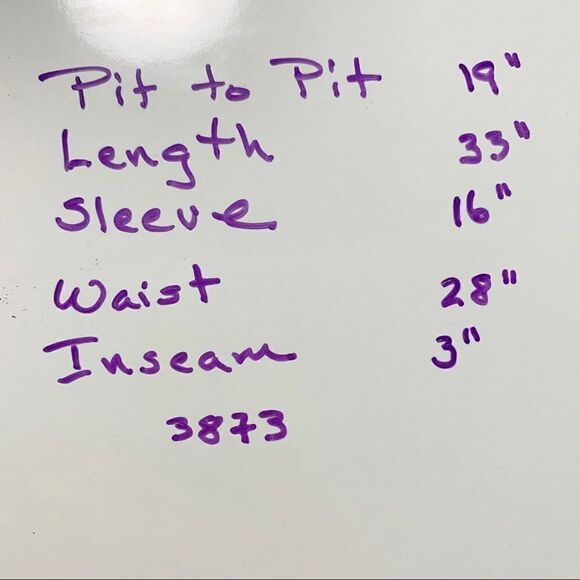 Pit to Pit 19"
Length 33"
Sleeve 16"
Waist 28"
Inseam 3"
3873